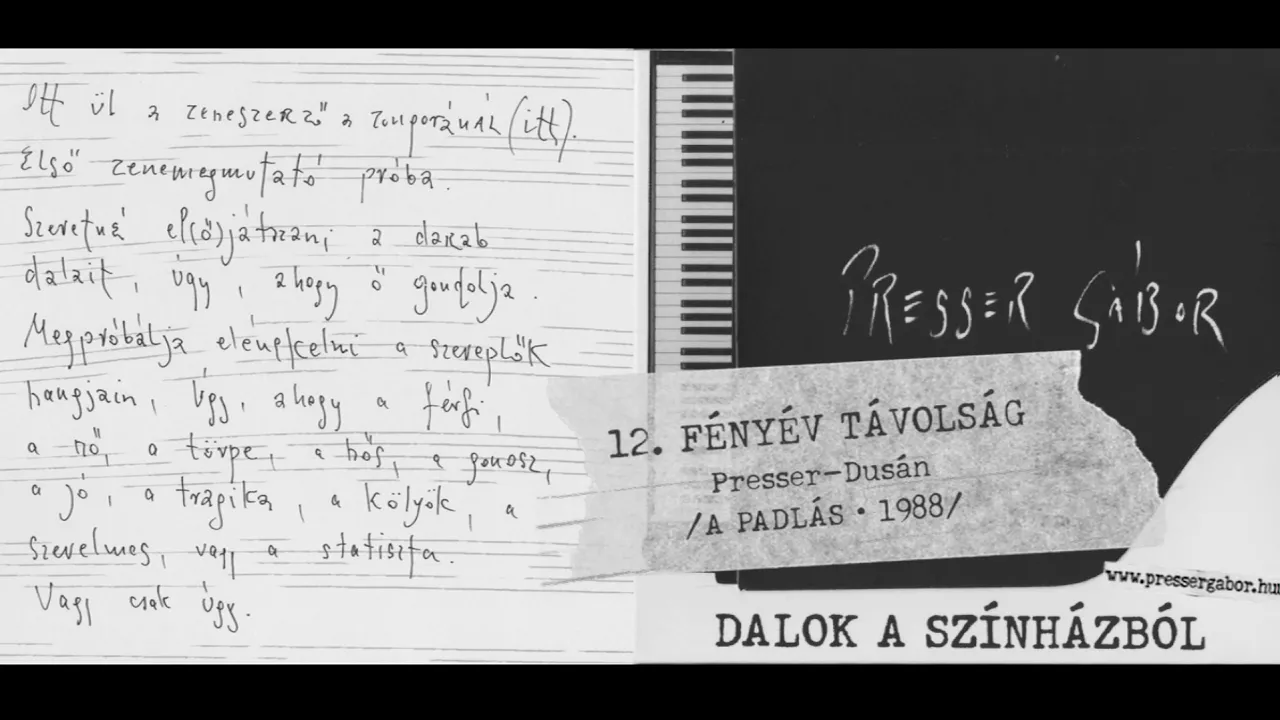 Itt ül a zeneszerző a zongoránál (itt).
Első zenemegmutató próba.
Szeretné el(ő)játszani a darab
dalait, úgy, ahogy ő gondolja.
Megpróbálja elénekelni a szereplők
hangjain, úgy, ahogy a férfi,
a nő, a törpe, a hős, a gonosz,
a jó, a tragika, a kölyök, a
szerelmes, vagy a statiszta.
Vagy csak úgy.
PRESSER GÁBOR
12. FÉNYÉV TÁVOLSÁG
Presser-Dusán
/A PADLÁS • 1988/
www.pressergabor.hu
DALOK A SZÍNHÁZBÓL